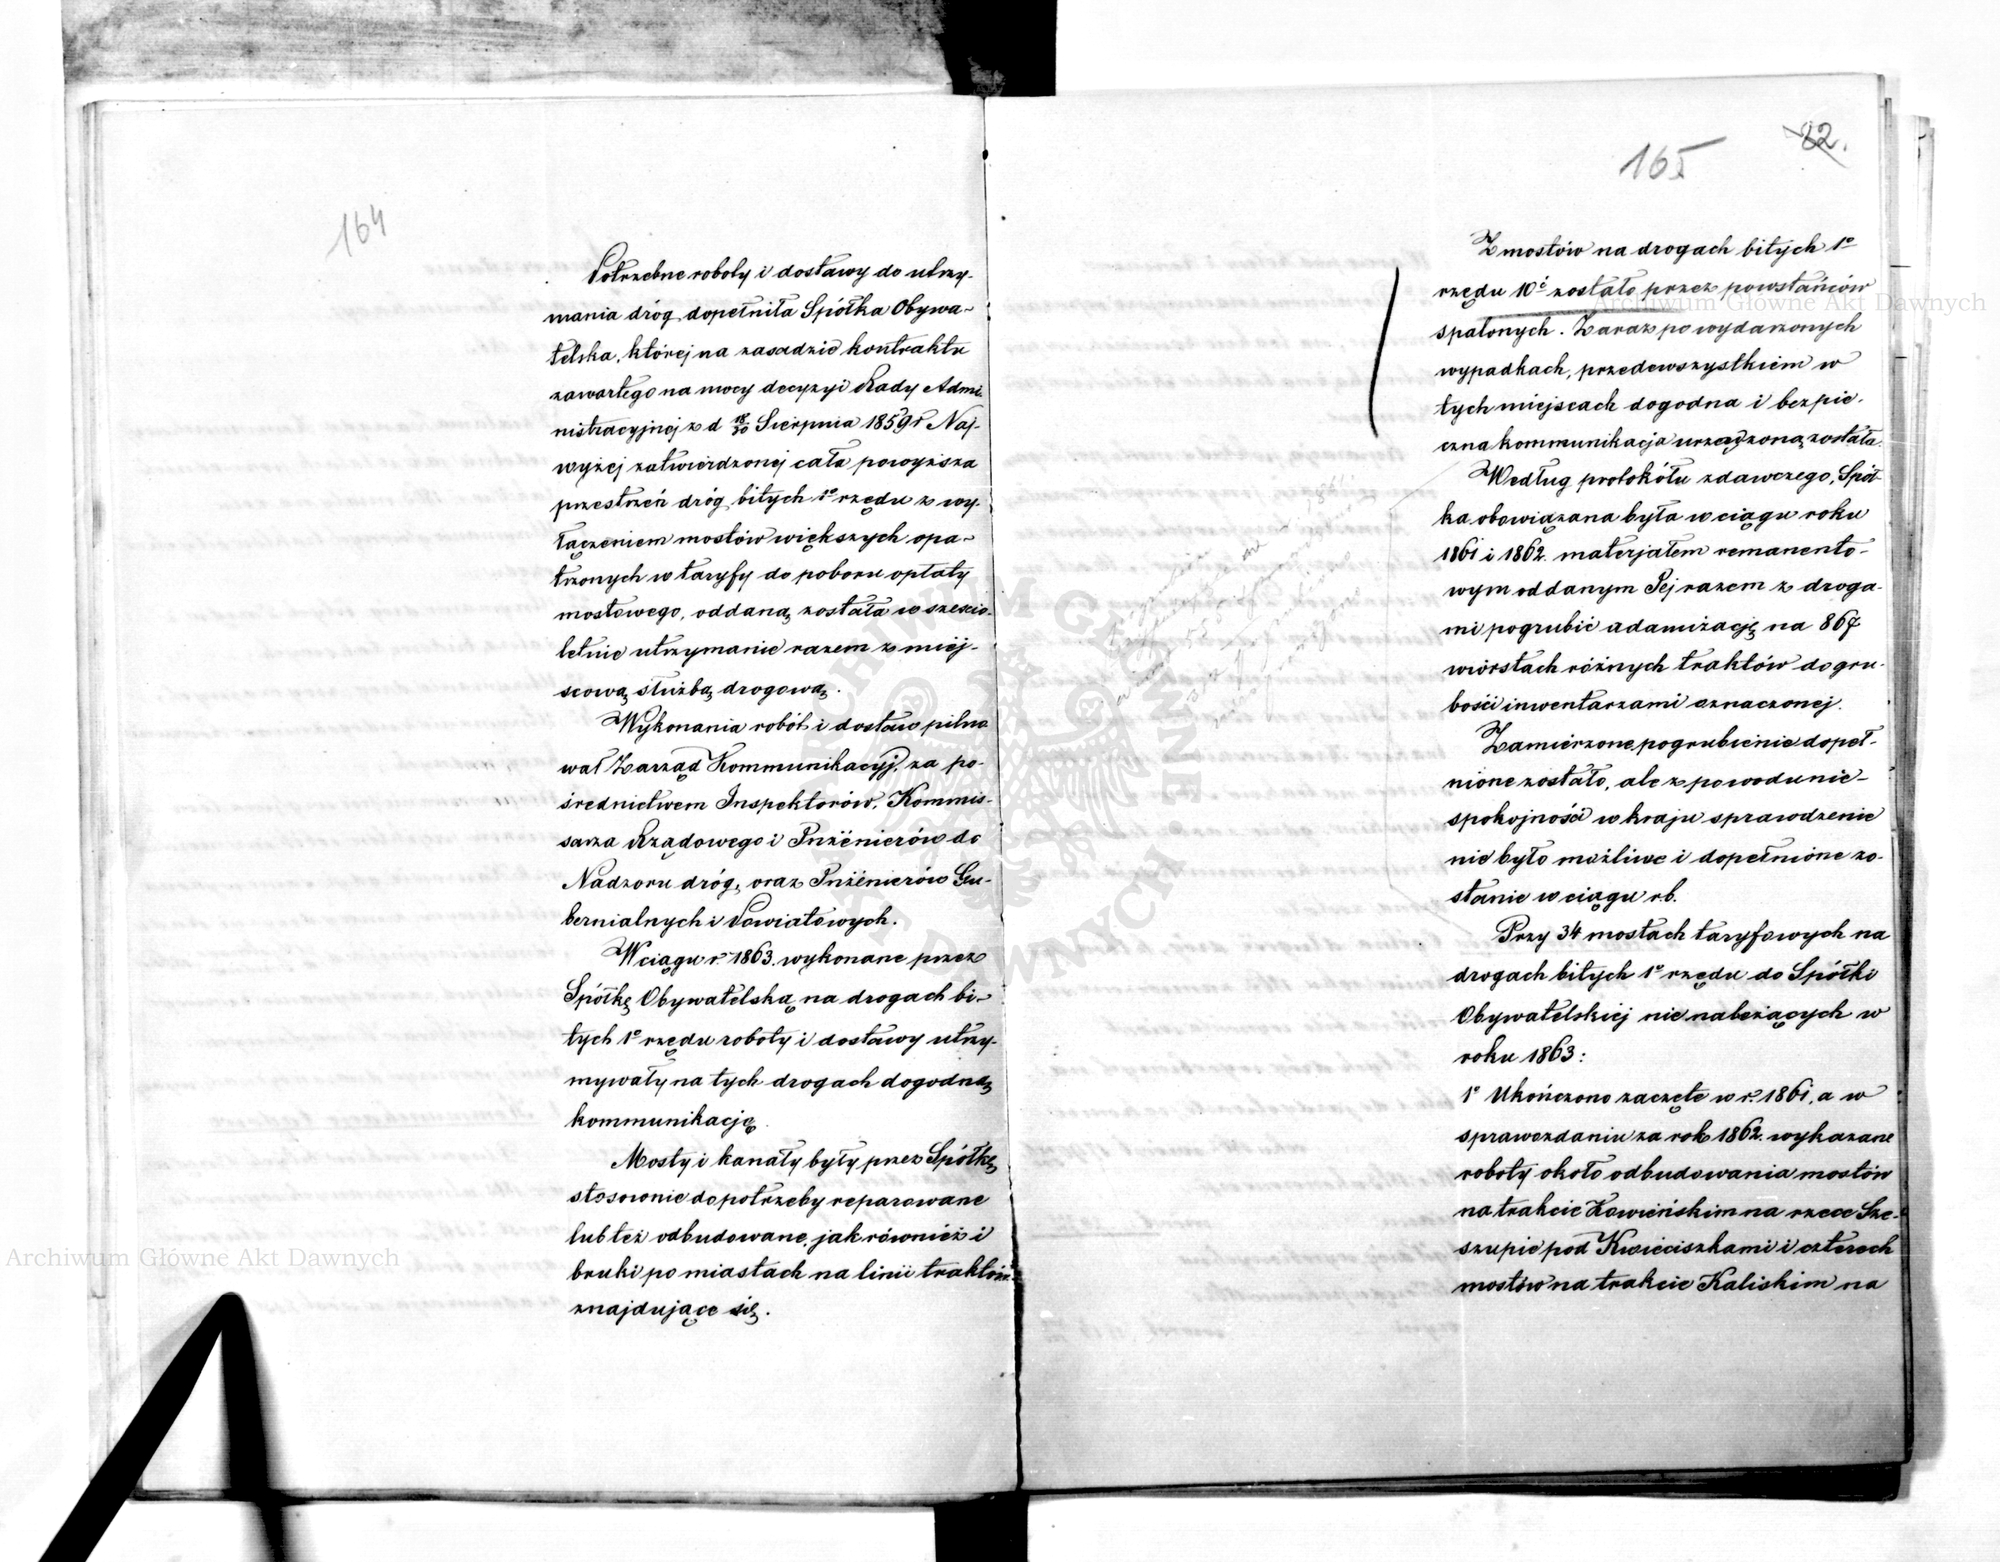 164
Potrzebne roboty i dostawy do utrzy-
mania dróg dopełniła Spółka Obywa-
telska, której na zasadzie kontraktu
zawartego na mocy decyzyi Rady Admi-
nistracyjnej z d 18/30 Sierpnia 1859 r Naj-
wyżej zatwierdzonej cała powyższa
przestrzeń dróg bitych 1º rzędu z wy-
łączeniem mostów większych opa-
trzonych w taryfy do poboru opłaty
mostowego, oddaną została w sześcio-
letnie utrzymanie razem z miej-
scową służbą drogową.
Wykonania robót i dostaw pilno
wał Zarząd Kommunikacyj. za po-
średnictwem Inspektorów, Kommis-
sarza Rządowego i Inżenierów do
Nadzoru dróg, oraz Inżenierów Gu-
bernialnych i Powiatowych.
W ciągu r. 1863. wykonane przez
Spółkę Obywatelską na drogach bi-
tych 1º rzędu roboty i dostawy utrzy-
mywały na tych drogach dogodną
kommunikację.
Mosty i kanały były przez Spółkę
stosownie do potrzeby reparowane
lub też odbudowane, jak również i
bruki po miastach na linii traktów
znajdujące się.
165
82.
Z mostów na drogach bitych 1º
rzędu 10ć zostało przez powstańców
spalonych. Zaraz po wydarzonych
wypadkach, przedewszystkiem w
tych miejscach dogodna i bezpie-
czna kommunikacja urządzoną została.
Według protokółu zdawczego, Spół-
ka obowiązana była w ciągu roku
1861 i 1862. materjałem remanento-
wym oddanym Jej razem z droga-
mi pogrubić adamizację na 867
wiorstach różnych traktów do gru-
bości inwentarzami oznaczonej.
Zamierzone pogrubienie dopeł-
nione zostało, ale z powodu nie-
spokojności w kraju sprawdzenie
nie było możliwe i dopełnione zo-
stanie w ciągu r.b.
Przy 34 mostach taryfowych na
drogach bitych 1º rzędu do Spółki
Obywatelskiej nie należących w
roku 1863:
1º Ukończono zaczęte w r. 1861, a w
sprawozdaniu za rok 1862. wykazane
roboty około odbudowania mostów
na trakcie Kowieńskim na rzece Sze-
szupie pod Kwieciszkami i czterech
mostów na trakcie Kaliskim na
Archiwum Główne Akt Dawnych
Archiwum Główne Akt Dawnych
ARCHIWUM GŁÓWNE AKT DAWNYCH